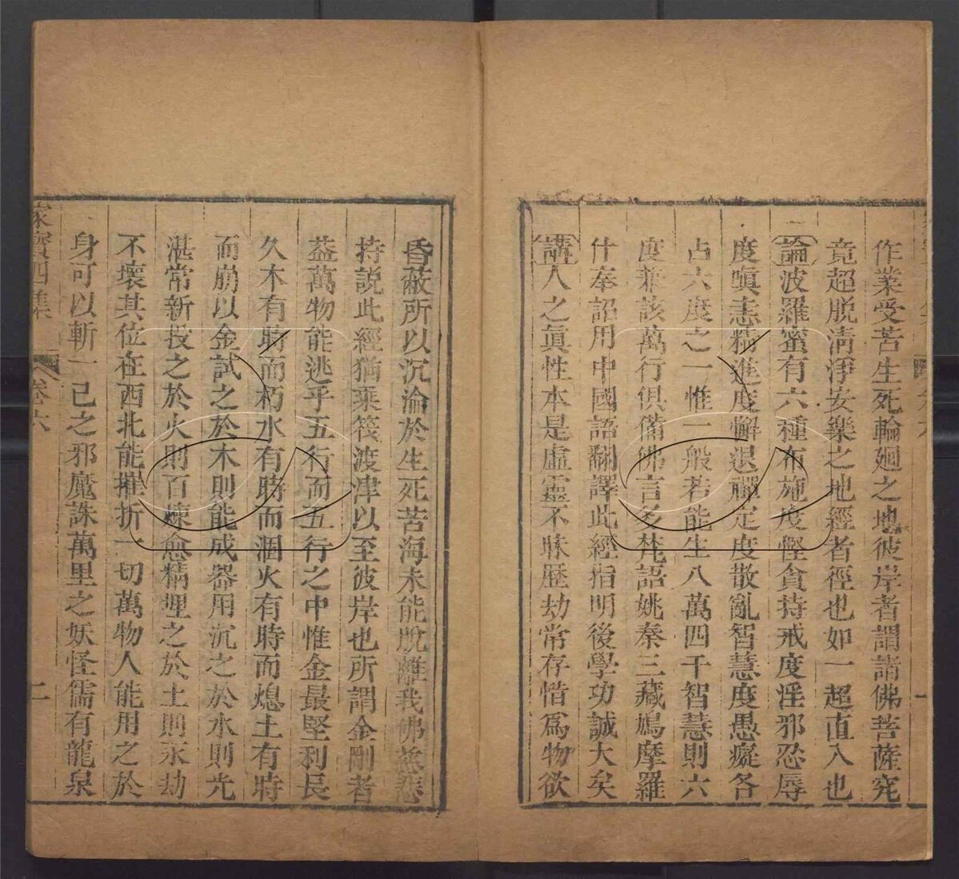 作業受苦生死輪廻之地彼岸者謂諸佛菩薩究
竟超脫清淨安樂之地經者徑也如一超直入也
論波羅蜜有六種布施度慳貪持戒度淫邪忍辱
度嗔恚精進度懈退禪定度散亂智慧度愚癡各
占六度之一惟一般若能生八萬四千智慧則六
度兼該萬行俱備佛言多梵語姚秦三藏鳩摩羅
什奉詔用中國語翻譯此經指明後學功誠大矣
講人之眞性本是虛靈不昧歷劫常存惜爲物欲
昏蔽所以沉淪於生死苦海未能脫離我佛慈悲
持說此經猶乘筏渡津以至彼岸也所謂金剛者
葢萬物能逃乎五行而五行之中惟金最堅利長
久木有時而朽水有時而涸火有時而熄土有時
而崩以金試之於木則能成器用沉之於水則光
湛常新投之於火則百煉愈精埋之於土則永劫
不壞其位在西北能摧折一切萬物人能用之於
身可以斬一己之邪魔誅萬里之妖怪儒有龍泉
家寶四集 卷六 二